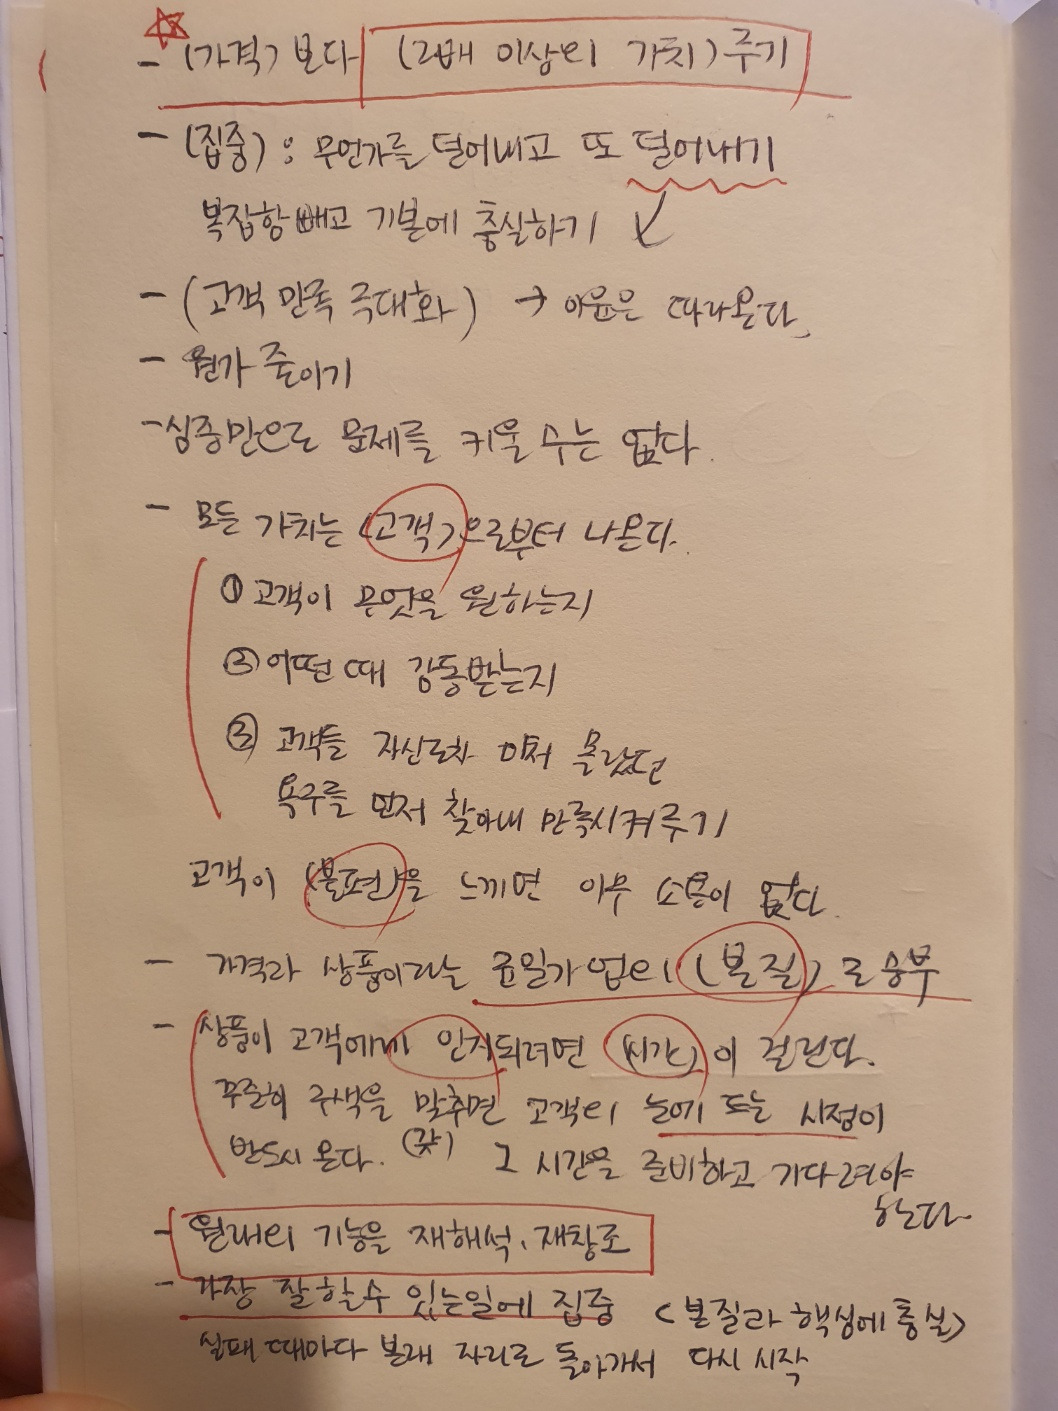 - (가격) 보다 (2배 이상의 가치) 주기
- (집중) : 무언가를 덜어내고 또 덜어내기
복잡함 빼고 기본에 충실하기
- (고객 만족 극대화) → 이윤은 따라온다.
- 원가 줄이기
- 심증만으로 문제를 키울 수는 없다.
- 모든 가치는 (고객)으로부터 나온다.
① 고객이 무엇을 원하는지
② 어떤 때 감동받는지
③ 고객들 자신조차 미처 몰랐던
욕구를 먼저 찾아내 만족시켜주기
고객이 (불편)을 느끼면 아무 소용이 없다.
- 가격과 상품이라는 업의 (본질)로 승부
- 상품이 고객에게 인지되려면 (시간)이 걸린다.
꾸준히 구색을 맞추면 고객의 눈에 띄는 시점이
반드시 온다. 그 시간을 준비하고 기다려야
한다.
- 원래의 기능을 재해석, 재창조
- 가장 잘할 수 있는 일에 집중 <본질과 핵심에 충실>
실패 때마다 본래 자리로 돌아가서 다시 시작